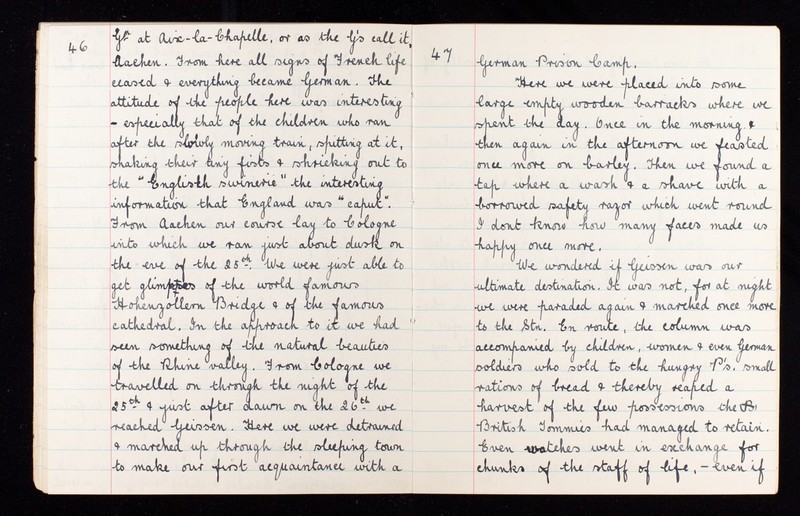 46
Gy at Aix-la-Chapelle, or as the G's call it,
Aachen. From here all signs of French life
ceased & everything became German. The
attitude of the people here was interesting
– especially that of the children who ran
after the slowly moving train, spitting at it,
shaking their tiny fists & shrieking out to
the "Englisth swinerie" the interesting
information that England was "caput".
From Aachen our course lay to Cologne
into which we ran just about dusk on
the eve of the 25th. We were just able to
get glimpses of the world famous
Hohenzollern Bridge & of the famous
cathedral. In the approach to it we had
seen something of the natural beauties
of the Rhine valley. From Cologne we
travelled on through the night of the
25th & just after dawn on the 26th we
reached Geissen. Here we were detrained
& marched up through the sleeping town
to make our first acquaintance with a
47
German Prison Camp.
Here we were placed into some
large empty wooden barracks where we
spent the day. Once in the morning &
then again in the afternoon we feasted
once more on barley. Then we found a
tap where a wash & a shave with a
borrowed safety razor which went round
I dont know how many faces made us
happy once more.
We wondered if Geissen was our
ultimate destination. It was not, for at night
we were paraded again & marched once more
to the Stn. En route, the column was
accompanied by children, women & even German
soldiers who sold to the hungry P's. small
rations of bread & thereby reaped a
harvest of the few possessions the
British Tommies had managed to retain.
Even watches went in exchange for
chunks of the staff of life, – even if